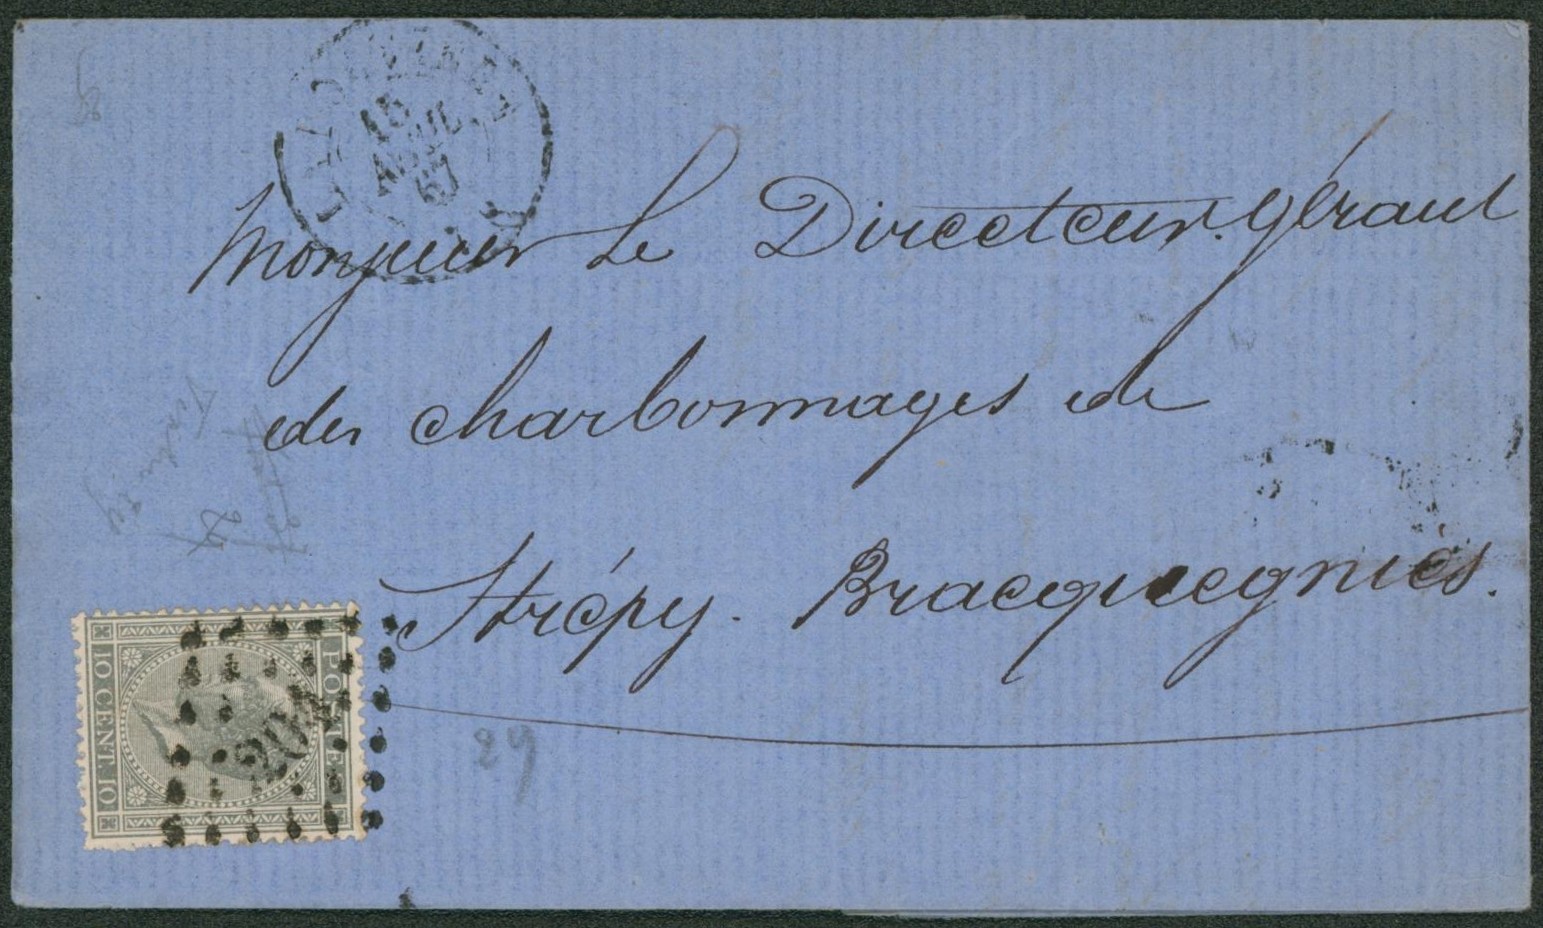 15
67
Monsieur Le Directeur. Gérant
des charbonnages de
Strépy. Bracquegniès.
POSTES
10 CENT. 10
204
29